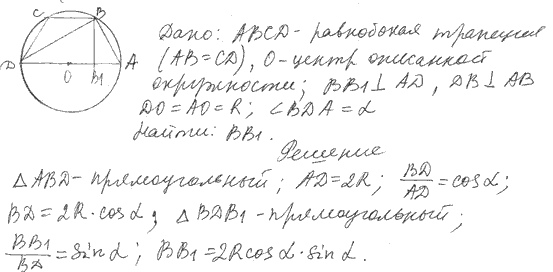 C B
D O B1 A
Дано: ABCD - равнобокая трапеция
(AB=CD), O-центр описанной
окружности; BB1⊥AD, DB⊥AB
DO=AO=R; ∠BDA=α
Найти: BB1.
Решение
△ABD-прямоугольный; AD=2R; BD/AD=cosα;
BD=2R·cosα; △BDB1-прямоугольный;
BB1/BD=sinα; BB1=2Rcosα·sinα.